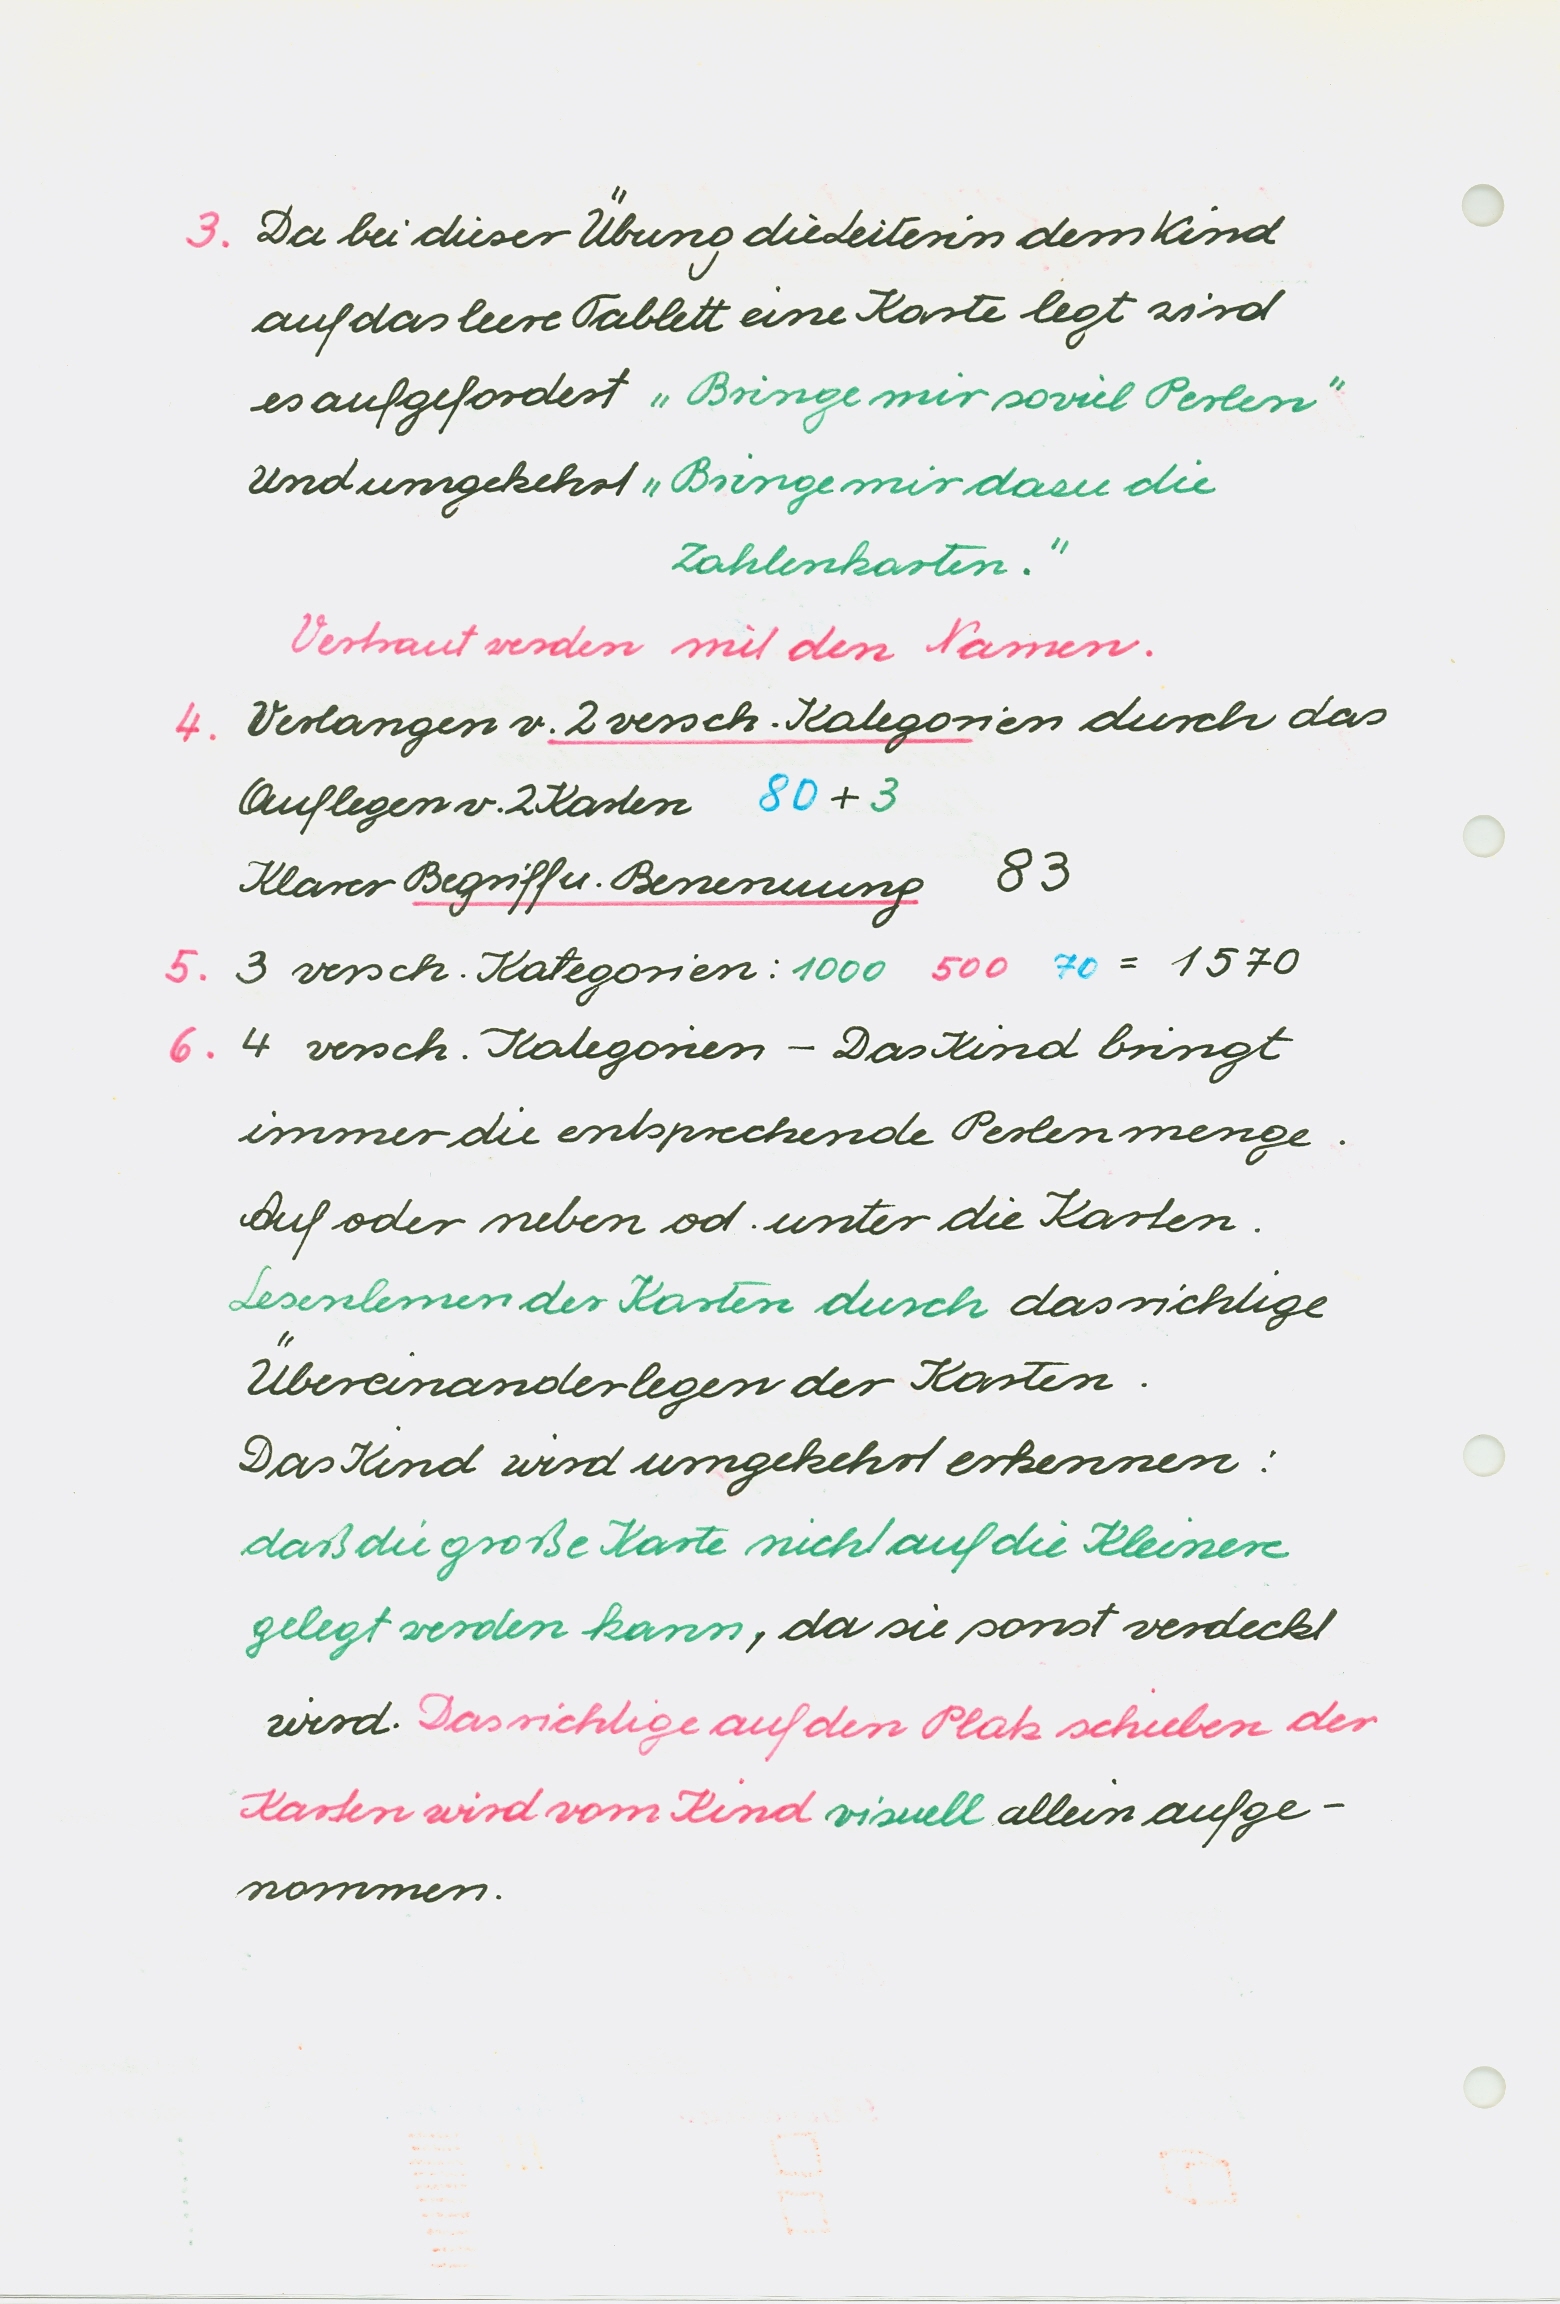 3. Da bei dieser Übung die Leiterin dem Kind
auf das leere Tablett eine Karte legt wird
es aufgefordert „Bringe mir soviel Perlen"
Und umgekehrt „Bringe mir dazu die
Zahlenkarten."
Vertraut werden mit den Namen.
4. Verlangen v. 2 versch. Kategorien durch das
Auflegen v. 2 Karten 80 + 3
Klarer Begriff u. Benennung 83
5. 3 versch. Kategorien: 1000 500 70 = 1570
6. 4 versch. Kategorien – Das Kind bringt
immer die entsprechende Perlenmenge.
Auf oder neben od. unter die Karten.
Lesenlernen der Karten durch das richtige
Übereinanderlegen der Karten.
Das Kind wird umgekehrt erkennen:
daß die große Karte nicht auf die Kleinere
gelegt werden kann, da sie sonst verdeckt
wird. Das richtige auf den Platz schieben der
Karten wird vom Kind visuell allein aufge-
nommen.